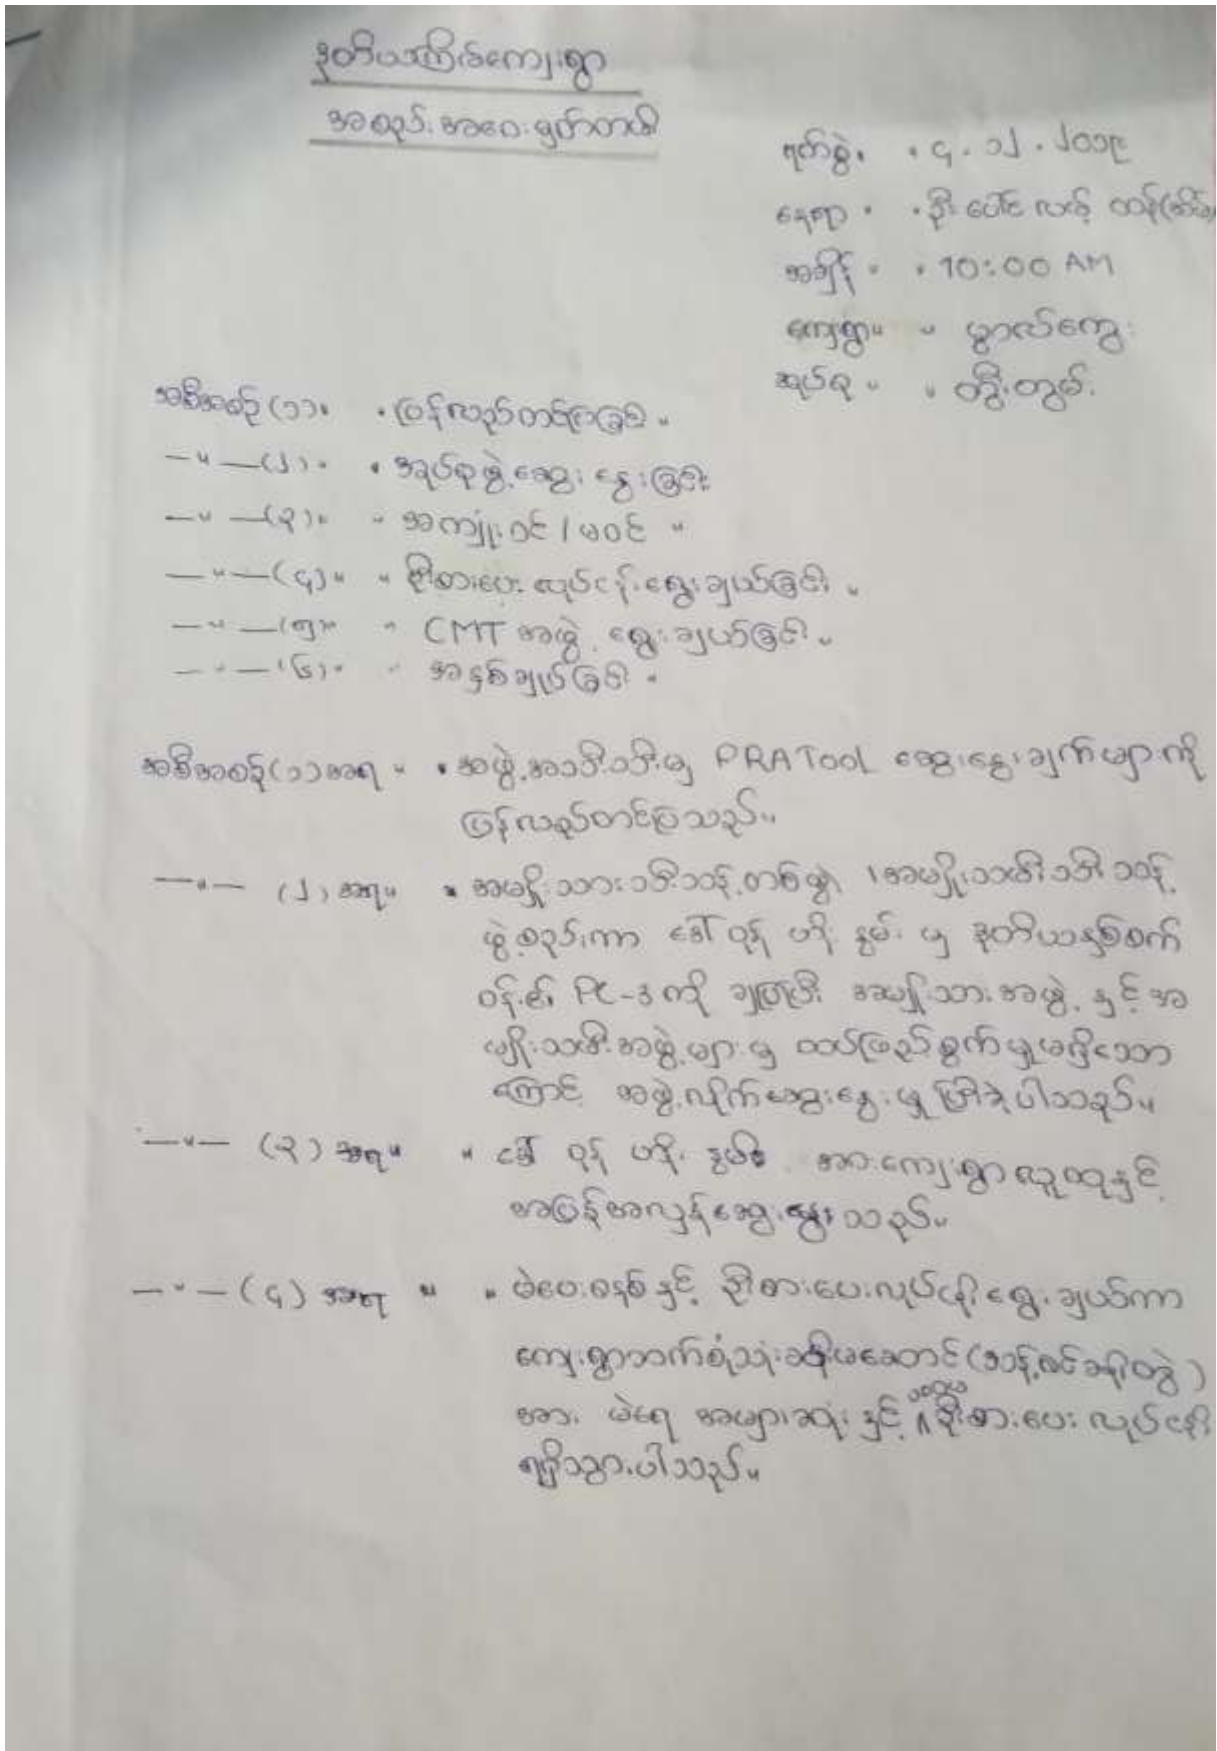 ဒုတိယအကြိမ်ကျေးရွာ
အစည်းအဝေးမှတ်တမ်း
ရက်စွဲ။ ။ ၄.၁၂.၂၀၁၉
နေရာ။ ။ ဦးပေါင်လစ့် ထန်(အိမ်)
အချိန်။ ။ 10:00 AM
ကျေးရွာ။ ။ မွာလ်ကွေး
အုပ်စု။ ။ တွီးတွမ်.
အစီအစဉ်(၁)။ ။ ပြန်လည်တင်ပြခြင်း။
—"—(၂)။ ။ အုပ်စုဖွဲ့ဆွေးနွေးခြင်း
—"—(၃)။ ။ အကျုံးဝင်/မဝင် "
—"—(၄)။ ။ ဦးစားပေးလုပ်ငန်းရွေးချယ်ခြင်း။
—"—(၅)။ ။ CMT အဖွဲ့ ရွေးချယ်ခြင်း။
—"—(၆)။ ။ အနှစ်ချုပ်ခြင်း။
အစီအစဉ်(၁)အရ။ ။ အဖွဲ့အသီးသီးမှ PRA Tool ဆွေးနွေးချက်များကို
ပြန်လည်တင်ပြသည်။
—"— (၂)အရ။ ။ အမျိုးသားသီးသန့်တစ်ဖွဲ့၊ အမျိုးသမီးသီးသန့်
ဖွဲ့စည်းကာ ဒေါ် ဝုန် ဟို နွမ်း မှ ဒုတိယနှစ်စက်
ဝန်း၏ PC-3 ကို ချပြပြီး အမျိုးသားအဖွဲ့ နှင့် အ
မျိုးသမီးအဖွဲ့များမှ ထပ်ဖြည့်စွက်မှုမရှိသော
ကြောင့် အဖွဲ့လိုက်ဆွေးနွေးမှု ပြီးခဲ့ပါသည်။
—"— (၃)အရ။ ။ ဒေါ် ဝုန် ဟို နွမ်း အား ကျေးရွာလူထုနှင့်
အပြန်အလှန်ဆွေးနွေးသည်။
—"—(၄)အရ။ ။ မဲပေးစနစ်နှင့် ဦးစားပေးလုပ်ငန်းရွေးချယ်ကာ
ကျေးရွာဘက်စုံသုံးခန်းမဆောင်(သန့်စင်ခန်းတွဲ)
အား မဲရေ အများဆုံးနှင့် ပထမ ဦးစားပေး လုပ်ငန်း
ရရှိသွားပါသည်။